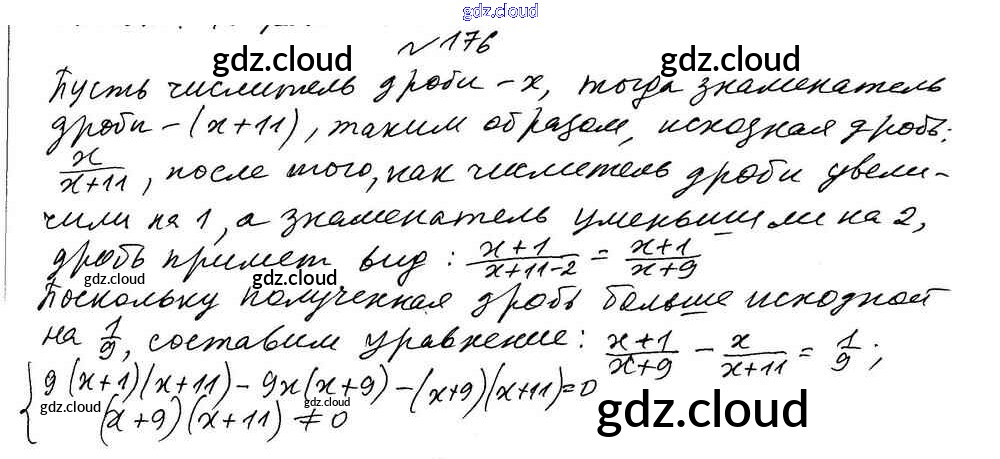 gdz.cloud
№176
gdz.cloud gdz.cloud
Пусть числитель дроби - x, тогда знаменатель
дроби - (x+11), таким образом, исходная дробь:
x/(x+11), после того, как числитель дроби увели-
чили на 1, а знаменатель уменьшили на 2,
дробь примет вид: (x+1)/(x+11-2) = (x+1)/(x+9)
gdz.cloud gdz.cloud gdz.cloud
Поскольку полученная дробь больше исходной
на 1/9, составим уравнение: (x+1)/(x+9) - x/(x+11) = 1/9;
{ 9(x+1)(x+11) - 9x(x+9) - (x+9)(x+11)=0
(x+9)(x+11) ≠ 0
gdz.cloud gdz.cloud gdz.cloud